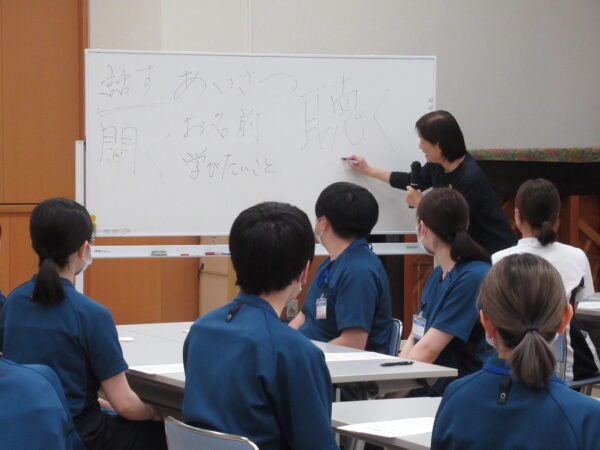 話す あいさつ 聴く
聞く お名前
学びたいこと